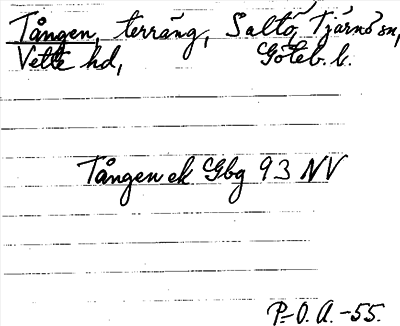 Tången, terräng, Saltö, Tjärnö sn,
Vette hd, Göteb. l.
Tången ek Gbg 93 NV
P-O. A. -55.